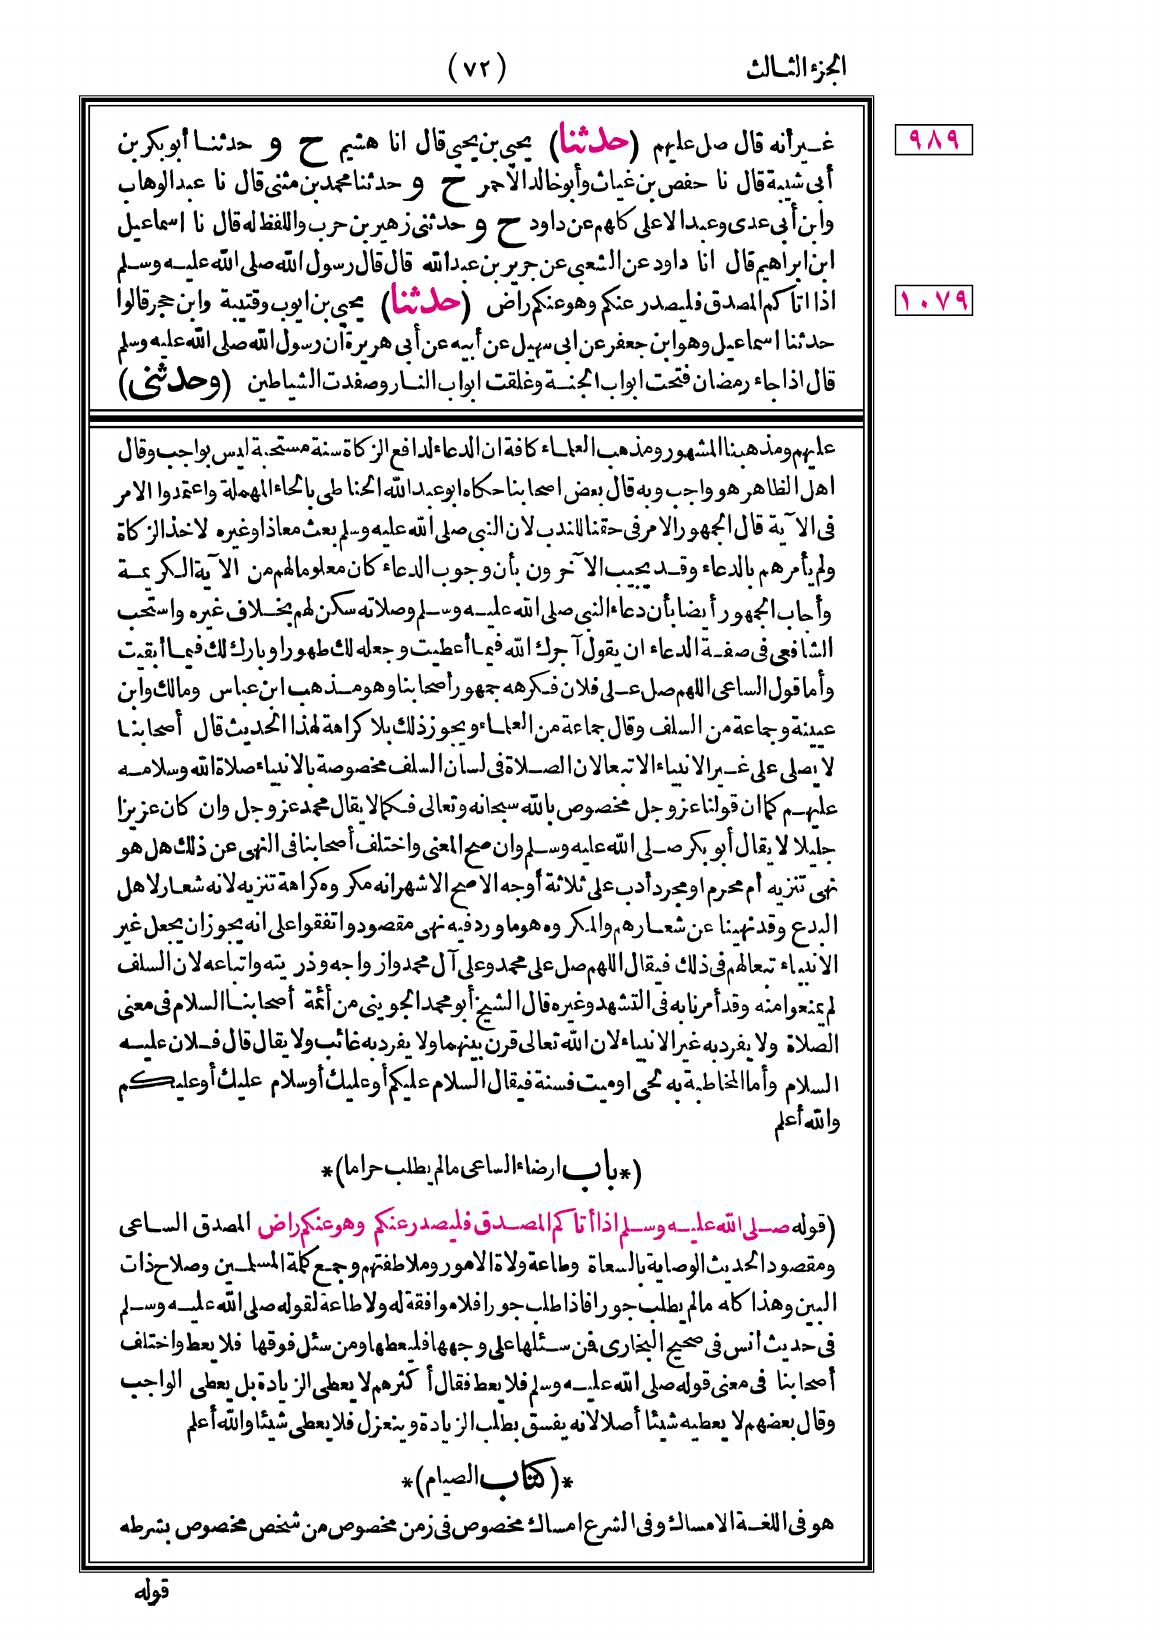 الجزء الثالث
(٧٢)
غير أنه قال صل عليهم (حدثنا) يحيى بن يحيى قال انا هشيم ح و حدثنا أبو بكر بن
٩٨٩
أبى شيبة قال نا حفص بن غياث وأبو خالد الاحمر ح و حدثنا محمد بن مثنى قال نا عبد الوهاب
وابن أبى عدى وعبد الاعلى كلهم عن داود ح و حدثنى زهير بن حرب واللفظ له قال نا اسماعيل
ابن ابراهيم قال انا داود عن الشعبي عن جرير بن عبد الله قال قال رسول الله صلى الله عليه وسلم
اذا اتاكم المصدق فليصدر عنكم وهو عنكم راض (حدثنا) يحيى بن ايوب وقتيبة وابن حجر قالوا
١٠٧٩
حدثنا اسماعيل وهو ابن جعفر عن ابى سهيل عن أبيه عن أبى هريرة أن رسول الله صلى الله عليه وسلم
قال اذا جاء رمضان فتحت ابواب الجنة وغلقت ابواب النار وصفدت الشياطين (وحدثنى)
عليهم ومذهبنا المشهور ومذهب العلماء كافة ان الدعاء لدافع الزكاة سنة مستحبة ليس بواجب وقال
اهل الظاهر هو واجب وبه قال بعض اصحابنا حكاه ابو عبد الله الحناطى بالحاء المهملة واعتمدوا الامر
فى الآية قال الجمهور الامر فى حقنا للندب لان النبى صلى الله عليه وسلم بعث معاذا وغيره لاخذ الزكاة
ولم يأمرهم بالدعاء وقد يجيب الآخرون بأن وجوب الدعاء كان معلوما لهم من الآية الكريمة
وأجاب الجمهور أيضا بأن دعاء النبى صلى الله عليه وسلم وصلاته سكن لهم بخلاف غيره واستحب
الشافعى فى صفة الدعاء ان يقول آجرك الله فيما أعطيت وجعله لك طهورا وبارك لك فيما أبقيت
وأما قول الساعى اللهم صل على فلان فكرهه جمهور أصحابنا وهو مذهب ابن عباس ومالك وابن
عيينة وجماعة من السلف وقال جماعة من العلماء ويجوز ذلك بلا كراهة لهذا الحديث قال أصحابنا
لا يصلى على غير الانبياء الا تبعا لان الصلاة فى لسان السلف مخصوصة بالانبياء صلاة الله وسلامه
عليهم كما ان قولنا عز وجل مخصوص بالله سبحانه وتعالى فكما لا يقال محمد عز وجل وان كان عزيزا
جليلا لا يقال أبو بكر صلى الله عليه وسلم وان صح المعنى واختلف أصحابنا فى النهى عن ذلك هل هو
نهى تنزيه أم محرم او مجرد أدب على ثلاثة أوجه الاصح الاشهر انه مكروه كراهة تنزيه لانه شعار لاهل
البدع وقد نهينا عن شعارهم والمكروه هو ما ورد فيه نهى مقصود واتفقوا على انه يجوز ان يجعل غير
الانبياء تبعا لهم فى ذلك فيقال اللهم صل على محمد وعلى آل محمد وازواجه وذريته واتباعه لان السلف
لم يمنعوا منه وقد أمرنا به فى التشهد وغيره قال الشيخ أبو محمد الجوينى من أئمة أصحابنا السلام فى معنى
الصلاة ولا يفرد به غير الانبياء لان الله تعالى قرن بينهما ولا يفرد به غائب ولا يقال قال فلان عليه
السلام وأما المخاطبة به لحى او ميت فسنة فيقال السلام عليكم أو عليك أو سلام عليك أو عليكم
والله أعلم
(*باب ارضاء الساعى مالم يطلب حراما)*
(قوله صلى الله عليه وسلم اذا أتاكم المصدق فليصدر عنكم وهو عنكم راض المصدق الساعى
ومقصود الحديث الوصاية بالسعاة وطاعة ولاة الامور وملاطفتهم وجمع كلمة المسلمين وصلاح ذات
البين وهذا كله مالم يطلب جورا فاذا طلب جورا فلا موافقة له ولا طاعة لقوله صلى الله عليه وسلم
فى حديث أنس فى صحيح البخارى فمن سئلها على وجهها فليعطها ومن سئل فوقها فلا يعط واختلف
أصحابنا فى معنى قوله صلى الله عليه وسلم فلا يعط فقال أكثرهم لا يعطى الزيادة بل يعطى الواجب
وقال بعضهم لا يعطيه شيئا أصلا لانه يفسق بطلب الزيادة وينعزل فلا يعطى شيئا والله أعلم
*(كتاب الصيام)*
هو فى اللغة الامساك وفى الشرع امساك مخصوص فى زمن مخصوص من شخص مخصوص بشرطه
قوله